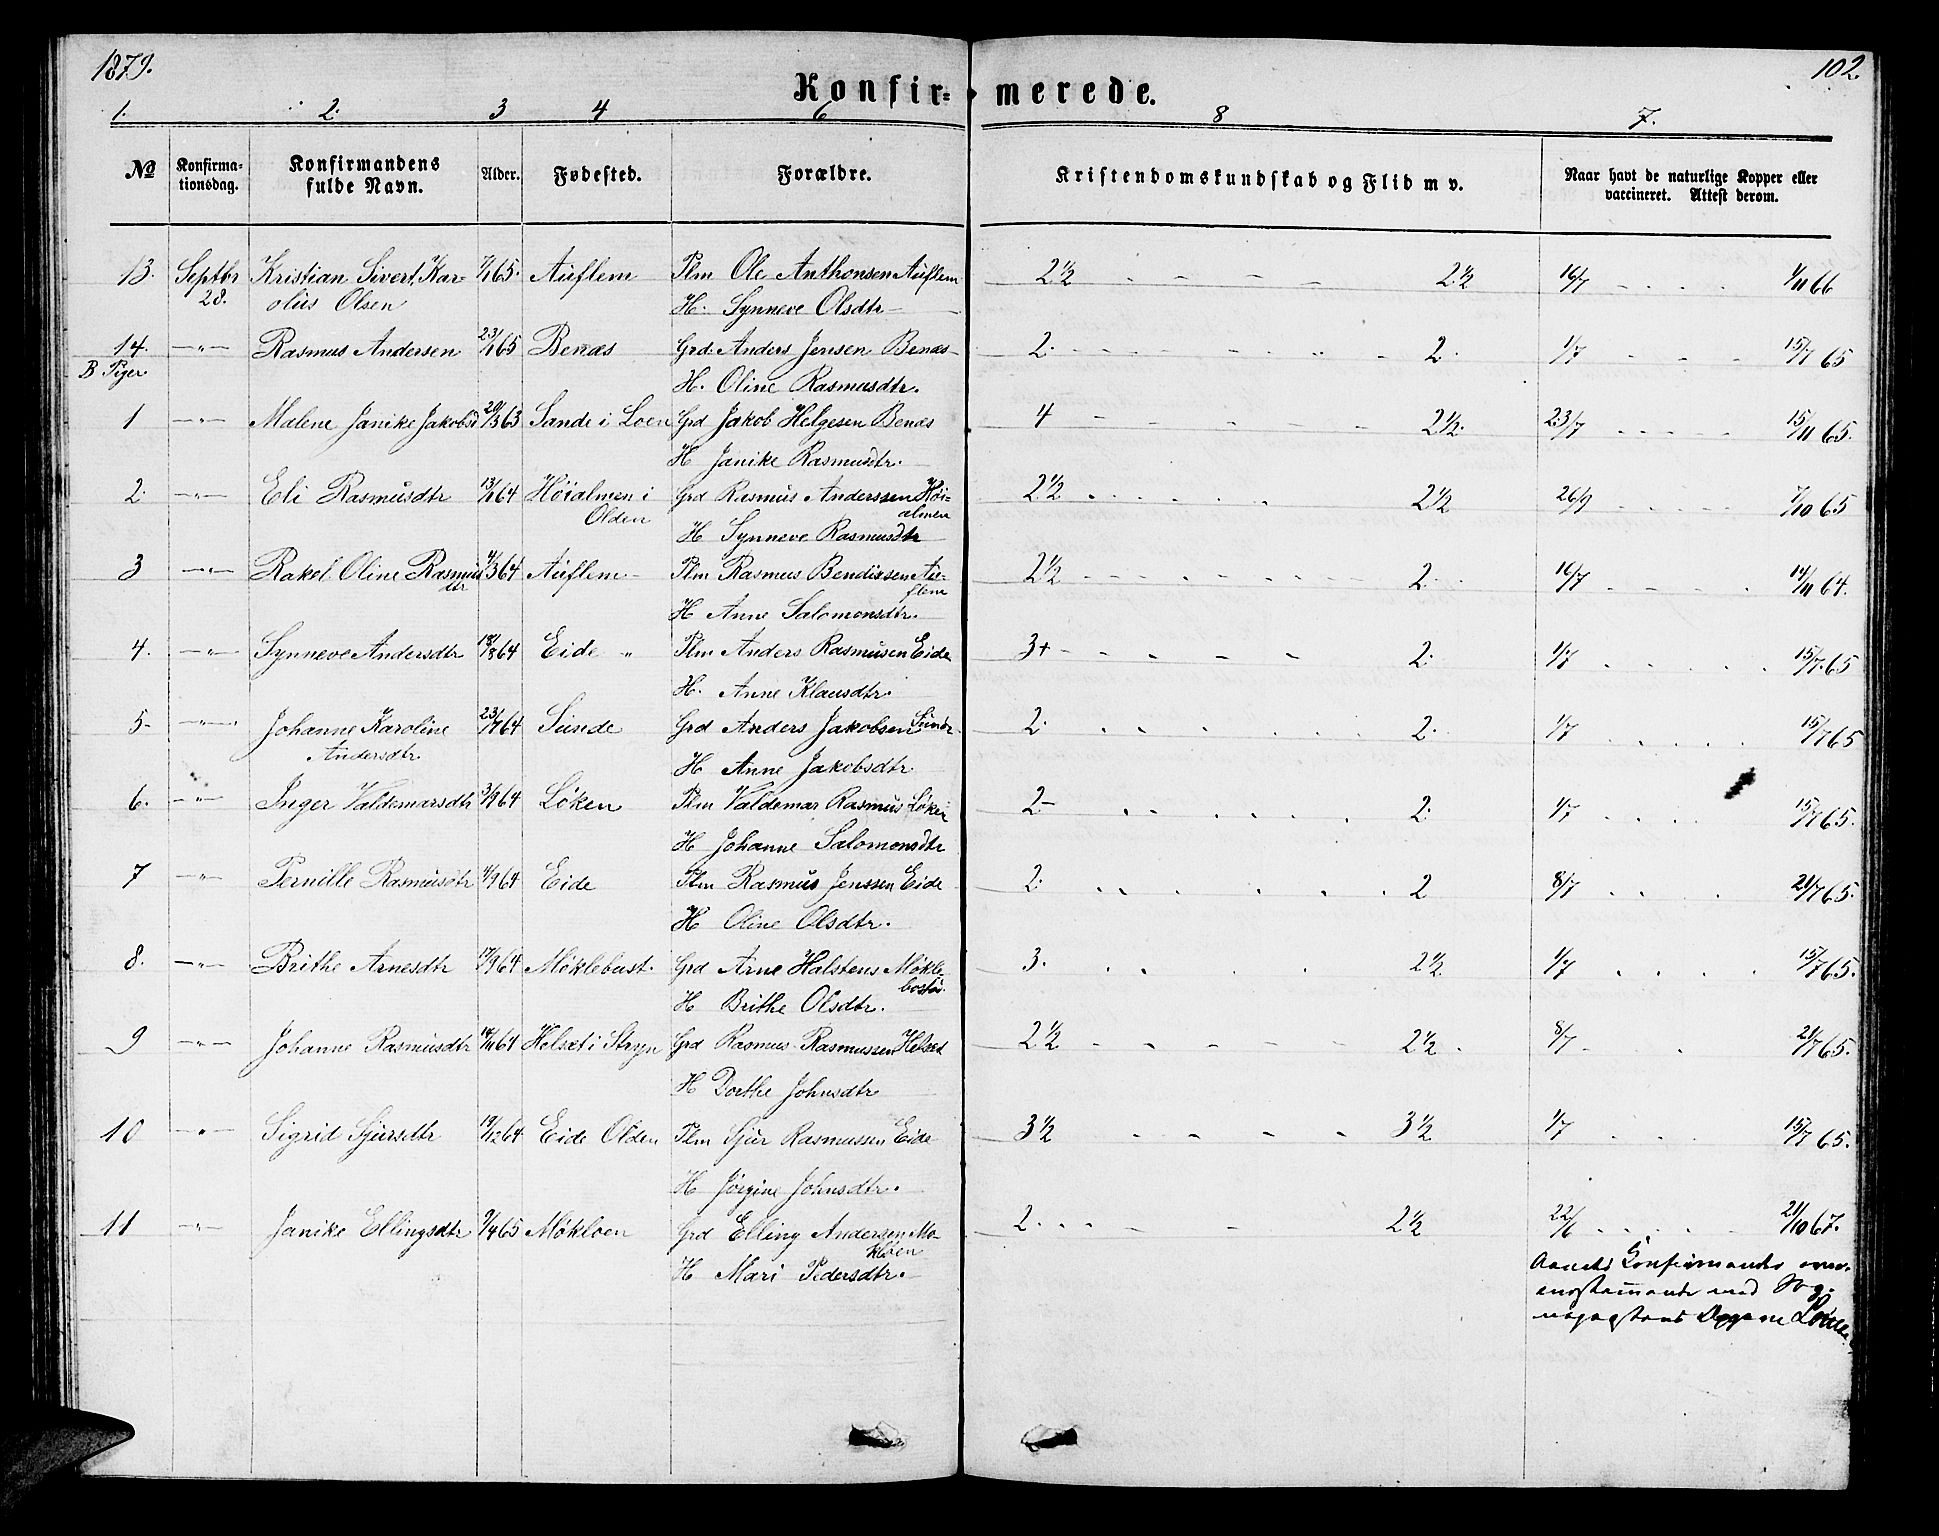 1879.
102.
Konfir= merede.
1. 2. 3 4 6 8 7.
No Konfirma=tionsdag. Konfirmandens fulde Navn. Alder. Fødested. Forældre. Kristendomskundskab og Flid m v. Naar havt de naturlige Kopper eller vaccineret. Attest derom.
13. Septbr Kristian Sivert Kar- 7/1 65. Auflem Plm Ole Anthonsen Auflem 2½ - - - - 2½ 16/7 - - - - 1/11 66
28. olus Olsen H. Synneve Olsdtr
14. -"- Rasmus Andersen 23/1 65 Benæs Grd. Anders Jensen Benæs 2. - - - - 2. 1/7 - - - 15/7 65
B Piger. H. Oline Rasmusdtr.
1 -"- Malene Janike Jakobsd 20/3 63 Sande i Loen Grd Jakob Helgesen Benæs 4 - - - - 2½. 23/7 - - - - 15/11 65.
H Janike Rasmusdtr.
2. -"- Eli Rasmusdtr 13/1 64 Höialmen i Grd Rasmus Anderssen Höi- 2½ . . . . 2½ 26/9 - - - - 7/10 65
Olden almen
H Synneve Rasmusdtr
3 -"- Rakel Oline Rasmus 4/3 64 Auflem Plm Rasmus Bendixen Au- 2½ - - - - 2. 16/7 - - - - 14/11 64.
dtr flem
H Anne Salomonsdtr.
4. -"- Synneve Andersdtr 18/8 64 Eide " Plm Anders Rasmusen Eide 3+ - - - - 2. 1/7 . . . . 15/7 65
H. Anne Klausdtr.
5- -"- Johanne Karoline 23/7 64 Sunde Grd Anders Jakobsen Sunde 2. . . . . 2. 1/7 . . . . 15/7 65
Andersdtr.
H Anne Jakobsdtr
6. -"- Inger Valdemarsdtr 3/9 64 Løken Plm Valdemar Rasmus Løken 2- . . . . 2. 1/7 . . . . 15/7 65.
H Johanne Salomonsdtr
7 -"- Pernille Rasmusdtr 4/9 64 Eide Plm Rasmus Jenssen Eide 2. . . . . 2 8/7 . . . 21/7 65.
H Oline Olsdtr.
8. -"- Brithe Arnesdtr 17/9 64 Møklebust. Grd Arne Halstens Møkle- 3. . . . . 2½ 1/7 . . . . 15/7 65.
H Brithe Olsdtr.
9 -"- Johanne Rasmusdtr 14/11 64 Helset i Stryn Grd Rasmus Rasmussen Helset 2½ - - - - 2½ . 8/7 - . 21/7 65.
H Dorthe Johnsdtr
10 -"- Sigrid Sjursdtr 19/12 64 Eide Olden Plm Sjur Rasmussen Eide 3½ - - - - 3½ 1/7 - . . 15/7 65.
H Jørgine Johnsdtr.
11 -"- Janike Ellingsdtr 9/4 65 Møkloen Grd Elling Andersen Mø- 2. . . - - 2½ 22/6 . . . . 21/10 67.
kløen
H Mari Pedersdtr.
Konfirmande
med